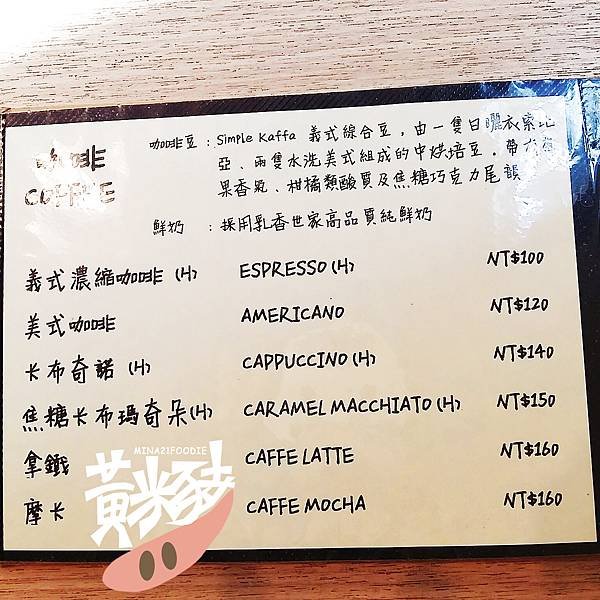 咖啡
COFFEE
咖啡豆 : Simple Kaffa 義式綜合豆，由一隻日曬衣索比
亞、兩隻水洗美式組成的中烘培豆．帶有
果香氣、柑橘類酸質及焦糖巧克力尾韻
鮮奶 : 採用乳香世家高品質純鮮奶
義式濃縮咖啡 (H) ESPRESSO (H) NT$100
美式咖啡 AMERICANO NT$120
卡布奇諾 (H) CAPPUCCINO (H) NT$140
焦糖卡布瑪奇朵(H) CARAMEL MACCHIATO (H) NT$150
拿鐵 CAFFE LATTE NT$160
摩卡 CAFFE MOCHA NT$160
MINA21FOODIE
黃米豬